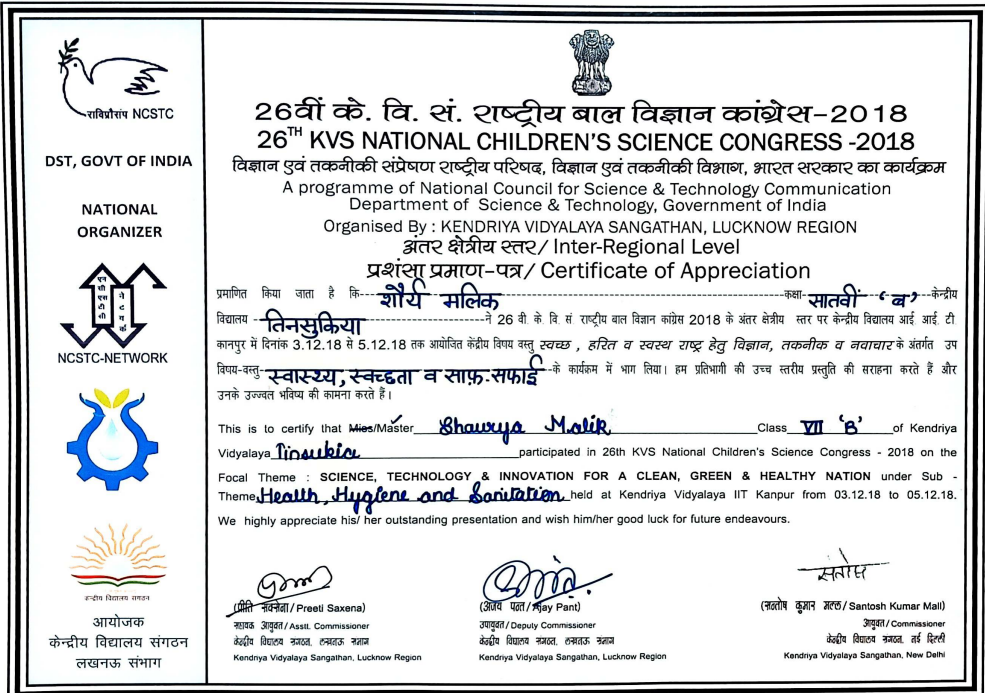 राविप्रौसंप NCSTC
DST, GOVT OF INDIA
NATIONAL
ORGANIZER
एन सी एस टी सी नेटवर्क
NCSTC-NETWORK
केन्द्रीय विद्यालय संगठन
आयोजक
केन्द्रीय विद्यालय संगठन
लखनऊ संभाग
26वीं के. वि. सं. राष्ट्रीय बाल विज्ञान कांग्रेस-2018
26TH KVS NATIONAL CHILDREN'S SCIENCE CONGRESS -2018
विज्ञान एवं तकनीकी संप्रेषण राष्ट्रीय परिषद, विज्ञान एवं तकनीकी विभाग, भारत सरकार का कार्यक्रम
A programme of National Council for Science & Technology Communication
Department of Science & Technology, Government of India
Organised By : KENDRIYA VIDYALAYA SANGATHAN, LUCKNOW REGION
अंतर क्षेत्रीय स्तर/ Inter-Regional Level
प्रशंसा प्रमाण-पत्र/ Certificate of Appreciation
प्रमाणित किया जाता है कि शौर्य मलिक कक्षा- सातवीं ‘ब’ केन्द्रीय
विद्यालय तिनसुकिया ने 26 वी. के. वि. सं. राष्ट्रीय बाल विज्ञान कांग्रेस 2018 के अंतर क्षेत्रीय स्तर पर केन्द्रीय विद्यालय आई. आई. टी
कानपुर में दिनांक 3.12.18 से 5.12.18 तक आयोजित केंद्रीय विषय वस्तु स्वच्छ , हरित व स्वस्थ राष्ट्र हेतु विज्ञान, तकनीक व नवाचार के अंतर्गत उप
विषय-वस्तु- स्वास्थ्य, स्वच्छता व साफ़-सफाई के कार्यकम में भाग लिया। हम प्रतिभागी की उच्च स्तरीय प्रस्तुति की सराहना करते हैं और
उनके उज्ज्वल भविष्य की कामना करते हैं।
This is to certify that Miss/Master Shaurya Malik Class VII 'B' of Kendriya
Vidyalaya Tinsukia participated in 26th KVS National Children's Science Congress - 2018 on the
Focal Theme : SCIENCE, TECHNOLOGY & INNOVATION FOR A CLEAN, GREEN & HEALTHY NATION under Sub -
Theme Health, Hygiene and Sanitation held at Kendriya Vidyalaya IIT Kanpur from 03.12.18 to 05.12.18.
We highly appreciate his/ her outstanding presentation and wish him/her good luck for future endeavours.
(प्रीति सक्सेना/ Preeti Saxena)
सहायक आयुक्त/ Asstt. Commissioner
केन्द्रीय विद्यालय संगठन, लखनऊ संभाग
Kendriya Vidyalaya Sangathan, Lucknow Region
(अजय पन्त/ Ajay Pant)
उपायुक्त/ Deputy Commissioner
केन्द्रीय विद्यालय संगठन, लखनऊ संभाग
Kendriya Vidyalaya Sangathan, Lucknow Region
संतोष
(सन्तोष कुमार मल्ल/ Santosh Kumar Mall)
आयुक्त/ Commissioner
केन्द्रीय विद्यालय संगठन, नई दिल्ली
Kendriya Vidyalaya Sangathan, New Delhi